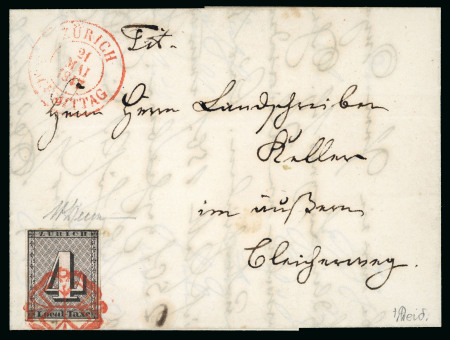 ZÜRICH
21
MAI
VORMITTAG
Tit.
Herrn Herrn Landschreiber
Keller
im äußern
Bleicherweg.
ZÜRICH
4
Local-Taxe